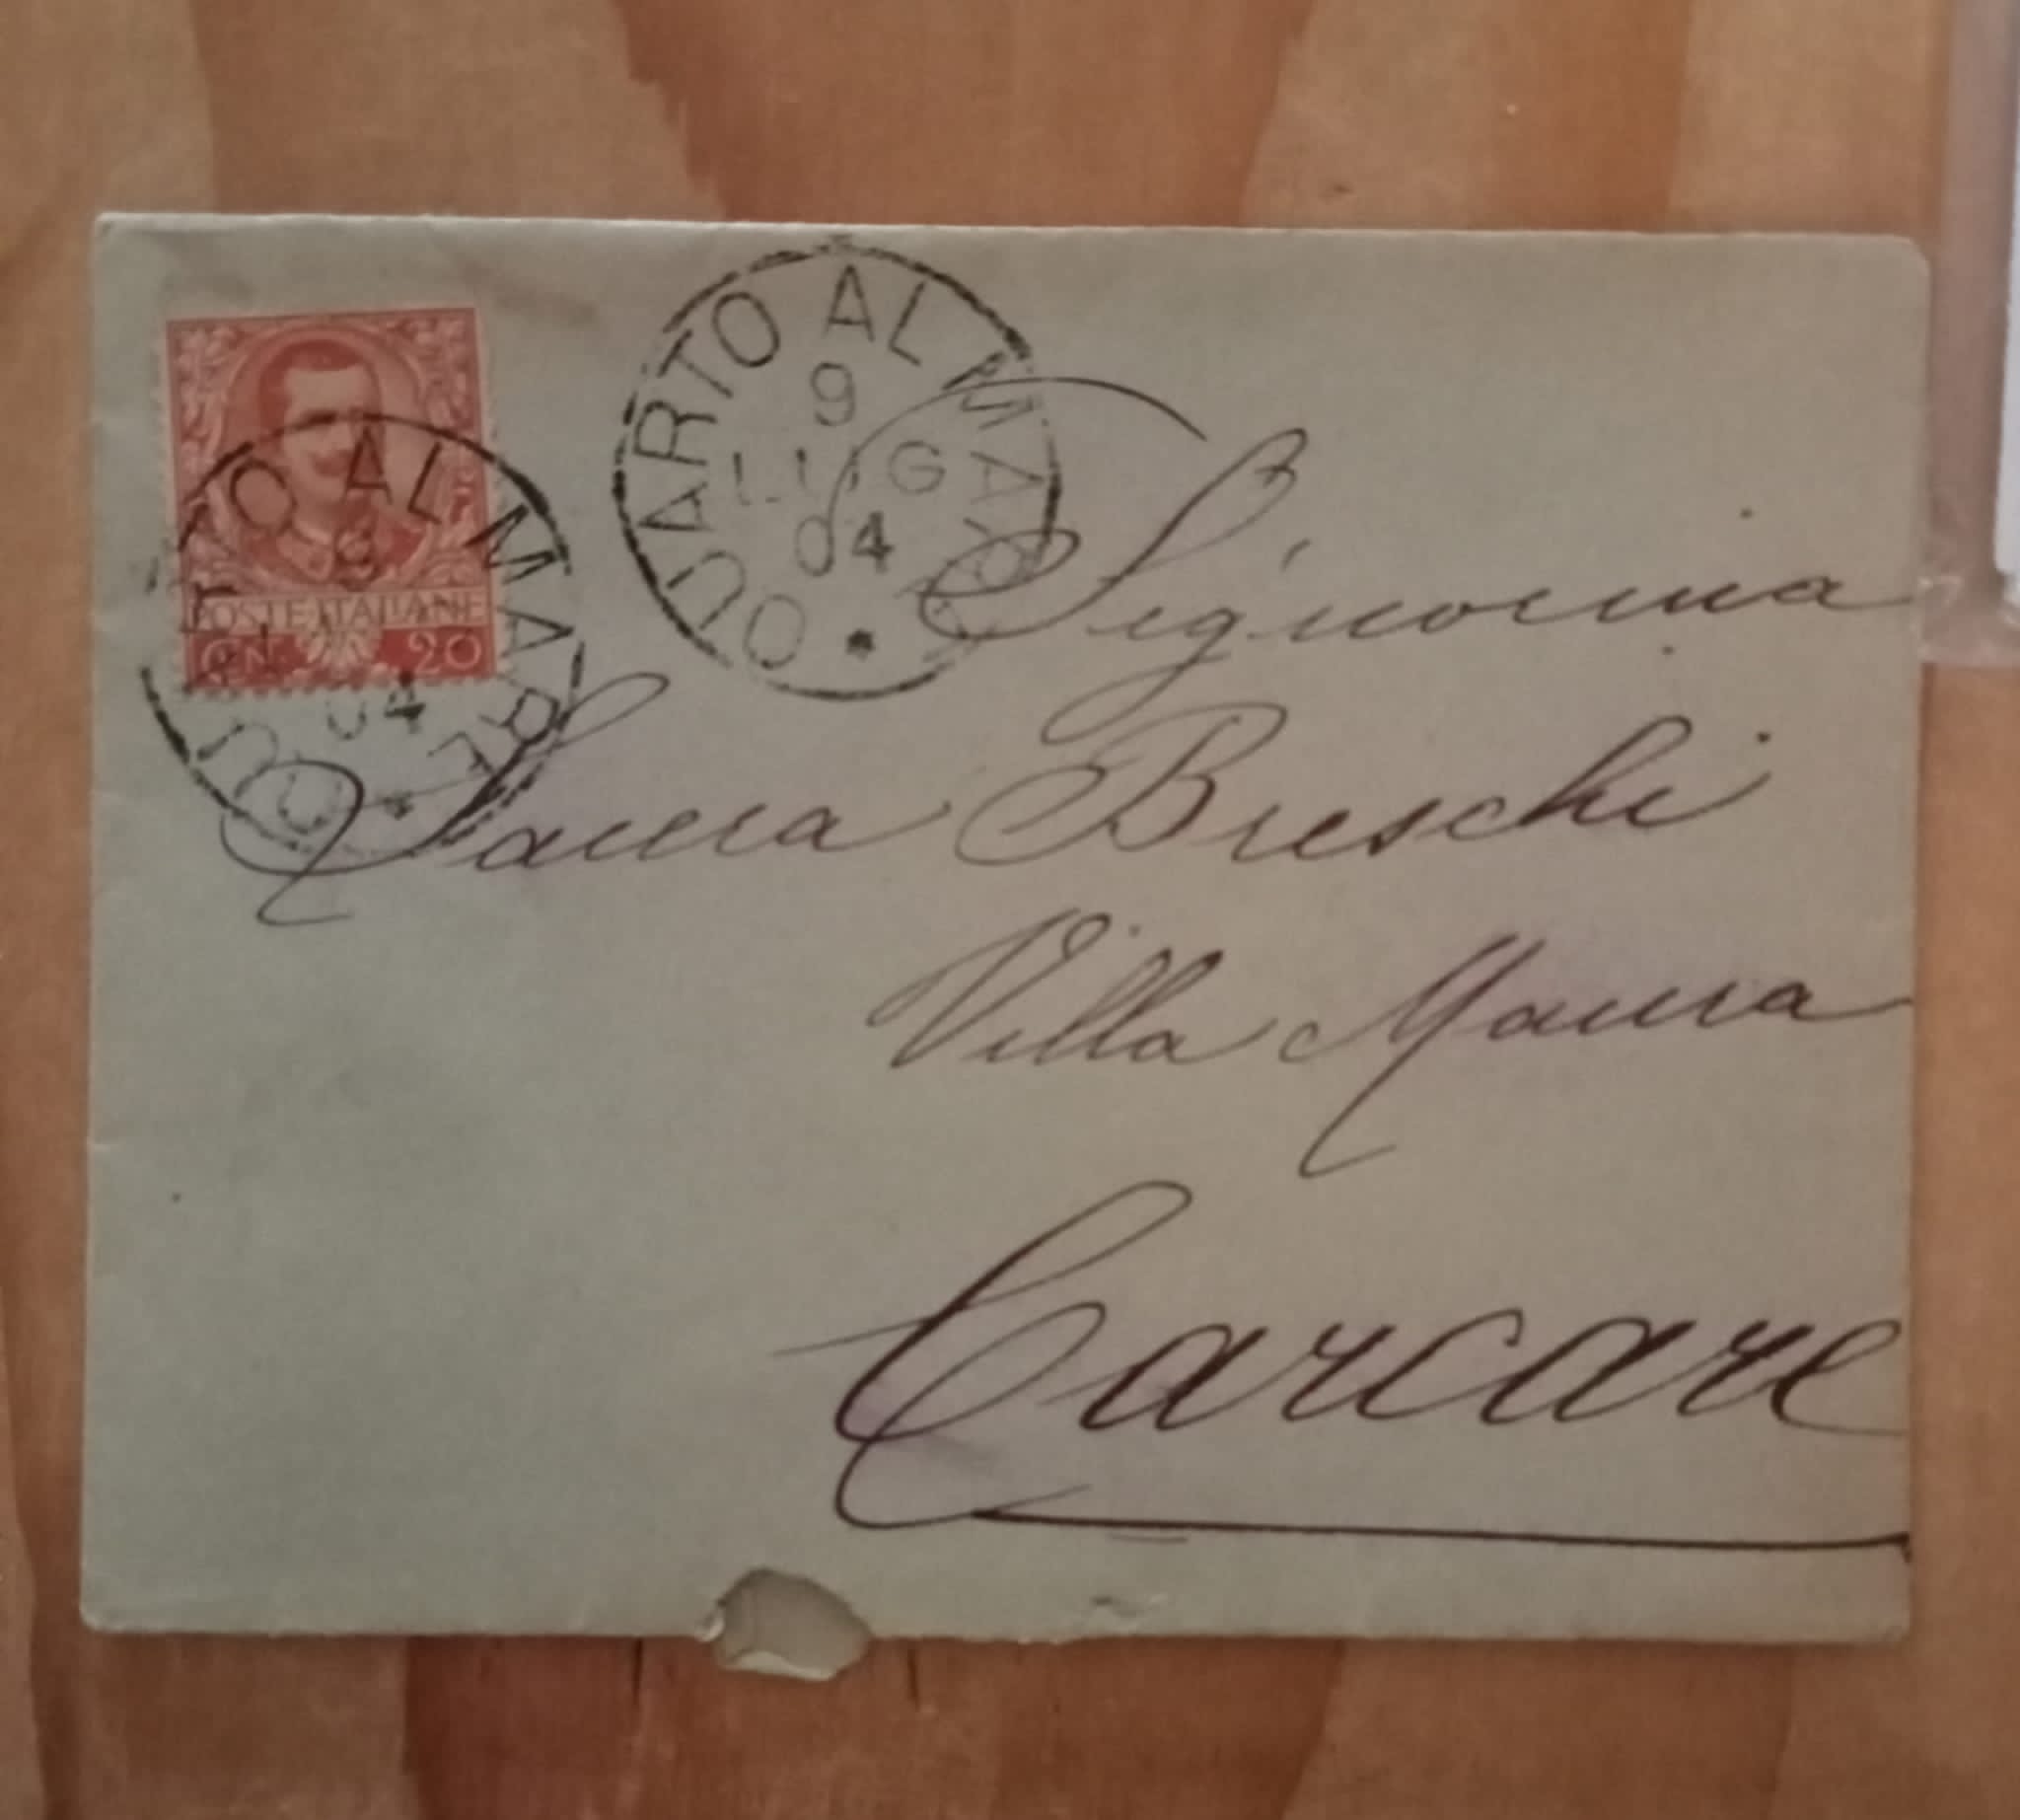 POSTE ITALIANE
CEN. 20
QUARTO AL MARE
9
04
QUARTO AL MARE
9
LUG
04
Signorina
Laura Breschi
Villa Maura
Carcare